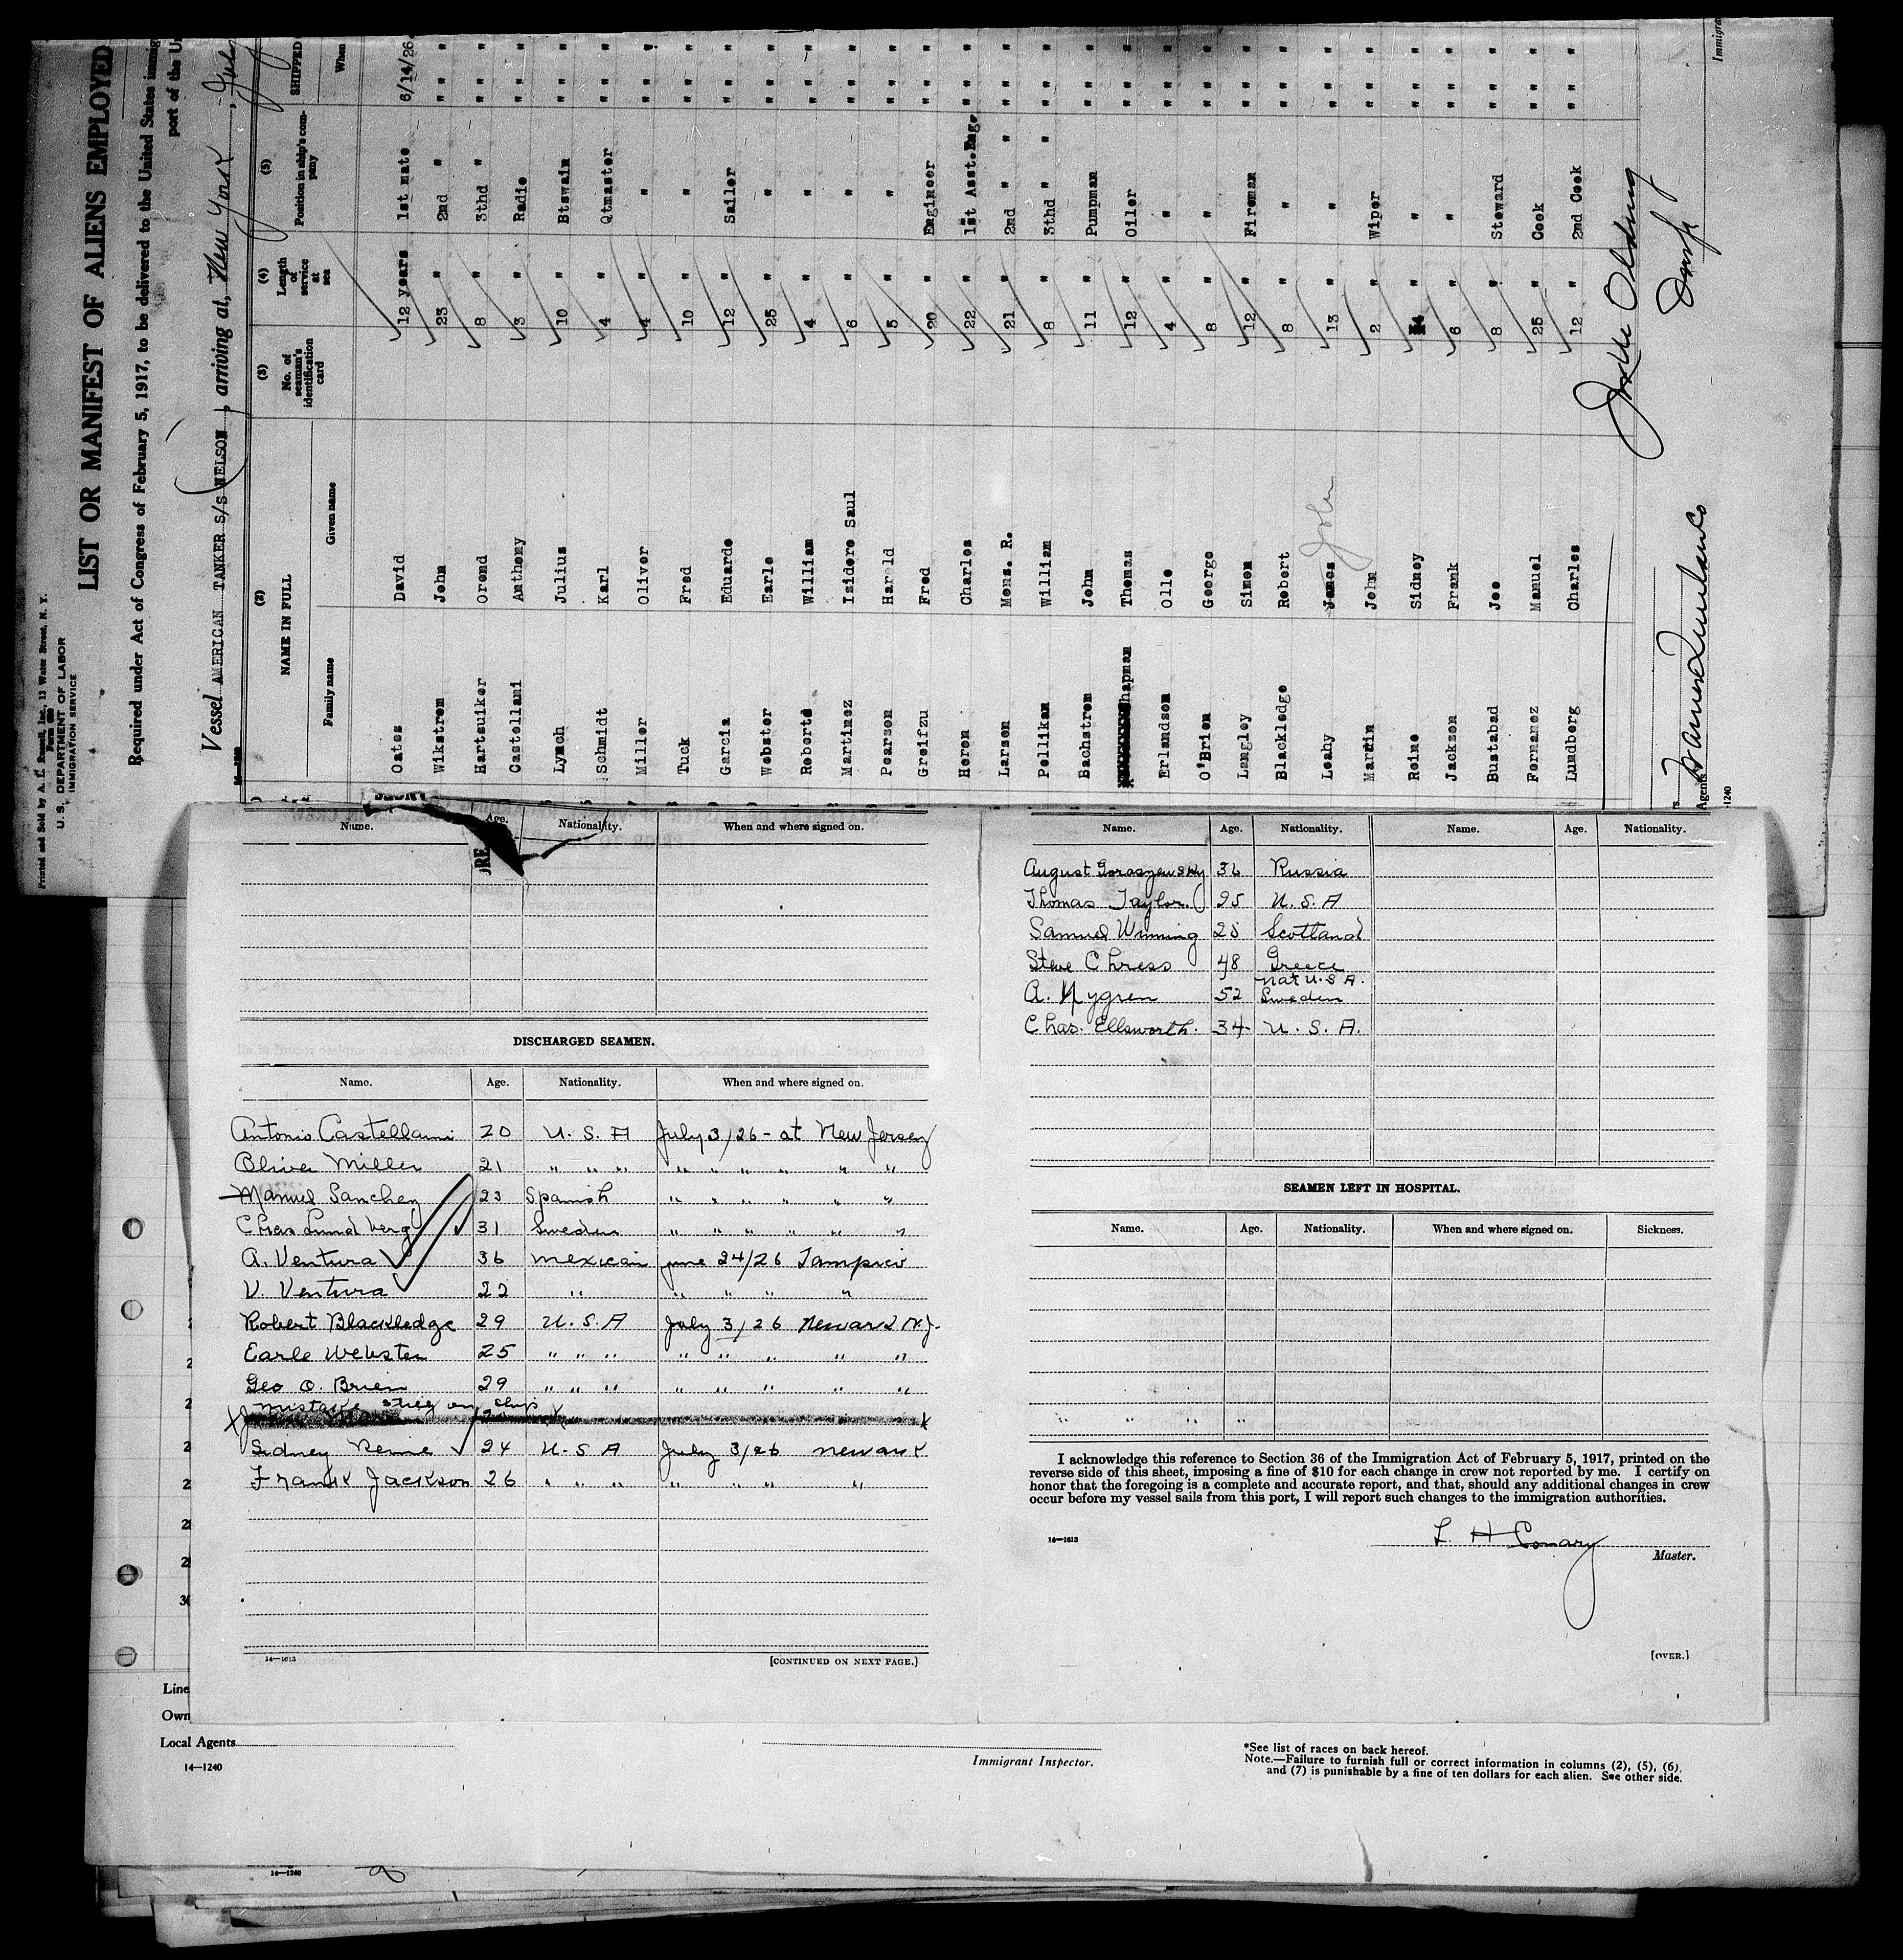 Printed and Sold by A. E. Russell, Inc., 13 Water Street, N. Y.
Form 680
U. S. DEPARTMENT OF LABOR
IMMIGRATION SERVICE
LIST OR MANIFEST OF ALIENS EMPLOYED
Required under Act of Congress of February 5, 1917, to be delivered to the United States immig
port of the U
Vessel AMERICAN TANKER S/S NELSON, arriving at, New York, July
(2) (3) (4) (5)
NAME IN FULL No. of seaman's identification card Length of service at sea Position in ship's company SHIPPED
Family name Given name When
Oates David 12 years 1st mate 6/14/26
Wikstrom John 23 " 2nd " " " "
Hartsuiker Orend 8 " 3thd " " " "
Castellani Anthony 3 " Radio " " "
Lynch Julius 10 " Btswain " " "
Schmidt Karl 4 " Qtmaster " " "
Miller Oliver 4 " " " " "
Tuck Fred 10 " " " " "
Garcia Eduardo 12 " Sailor " " "
Webster Earle 25 " " " " "
Roberts William 4 " " " " "
Martinez Isidore Saul 6 " " " " "
Pearson Harold 5 " " " " "
Greifzu Fred 20 " Engineer " " "
Heron Charles 22 " 1st Asst.Eng. " " "
Larsen Mons. R. 21 " 2nd " " " " "
Pellikan William 8 " 3thd " " " " "
Bachstrom John 11 " Pumpman " " "
Chapman Thomas 12 " Oiler " " "
Erlandson Olle 4 " " " " "
O'Brien George 8 " " " " "
Langley Simon 12 " Fireman " " "
Blackledge Robert 8 " " " " "
Leahy James John 13 " " " " "
Martin John 2 " Wiper " " "
Reine Sidney 4 " " " " "
Jackson Frank 6 " " " " "
Bustabad Joe 8 " Steward " " "
Fernanez Manuel 25 " Cook " " "
Lundberg Charles 12 " 2nd Cook " " "
Agents
1240
Immigra
Name. Age. Nationality. When and where signed on.
DISCHARGED SEAMEN.
Name. Age. Nationality. When and where signed on.
Antonio Castellani 20 U. S. A July 3/26 - at New Jersey
Oliver Miller 21 " " " " " " " " "
Manuel Sanchez 23 Spanish " " " " " "
Chas Lundberg 31 Sweden " " " " " "
A. Ventura 36 Mexican june 24/26 Tampico
V. Ventura 22 " " " " "
Robert Blackledge 29 U. S. A July 3/26 Newark N.J.
Earle Webster 25 " " " " " " " "
Geo O. Brien 29 " " " " " " " "
mistake still on ship
Sidney Reine 24 U. S A July 3/26 Newark
Frank Jackson 26 " " " " " " "
14—1613 [CONTINUED ON NEXT PAGE.]
Name. Age. Nationality. Name. Age. Nationality.
August 36 Russia
Thomas Taylor. 25 U. S. A
Samuel Winning 28 Scotland
Steve Chress 48 Greece
nat U. S A.
A. Nygren 52 Sweden
Chas. Ellsworth. 34 U. S. A.
SEAMEN LEFT IN HOSPITAL.
Name. Age. Nationality. When and where signed on. Sickness.
I acknowledge this reference to Section 36 of the Immigration Act of February 5, 1917, printed on the
reverse side of this sheet, imposing a fine of $10 for each change in crew not reported by me. I certify on
honor that the foregoing is a complete and accurate report, and that, should any additional changes in crew
occur before my vessel sails from this port, I will report such changes to the immigration authorities.
L. H Conary
14—1613 Master.
[OVER.]
Line
Own
Local Agents
14—1240
Immigrant Inspector.
*See list of races on back hereof.
Note.—Failure to furnish full or correct information in columns (2), (5), (6),
and (7) is punishable by a fine of ten dollars for each alien. See other side.
14—1240